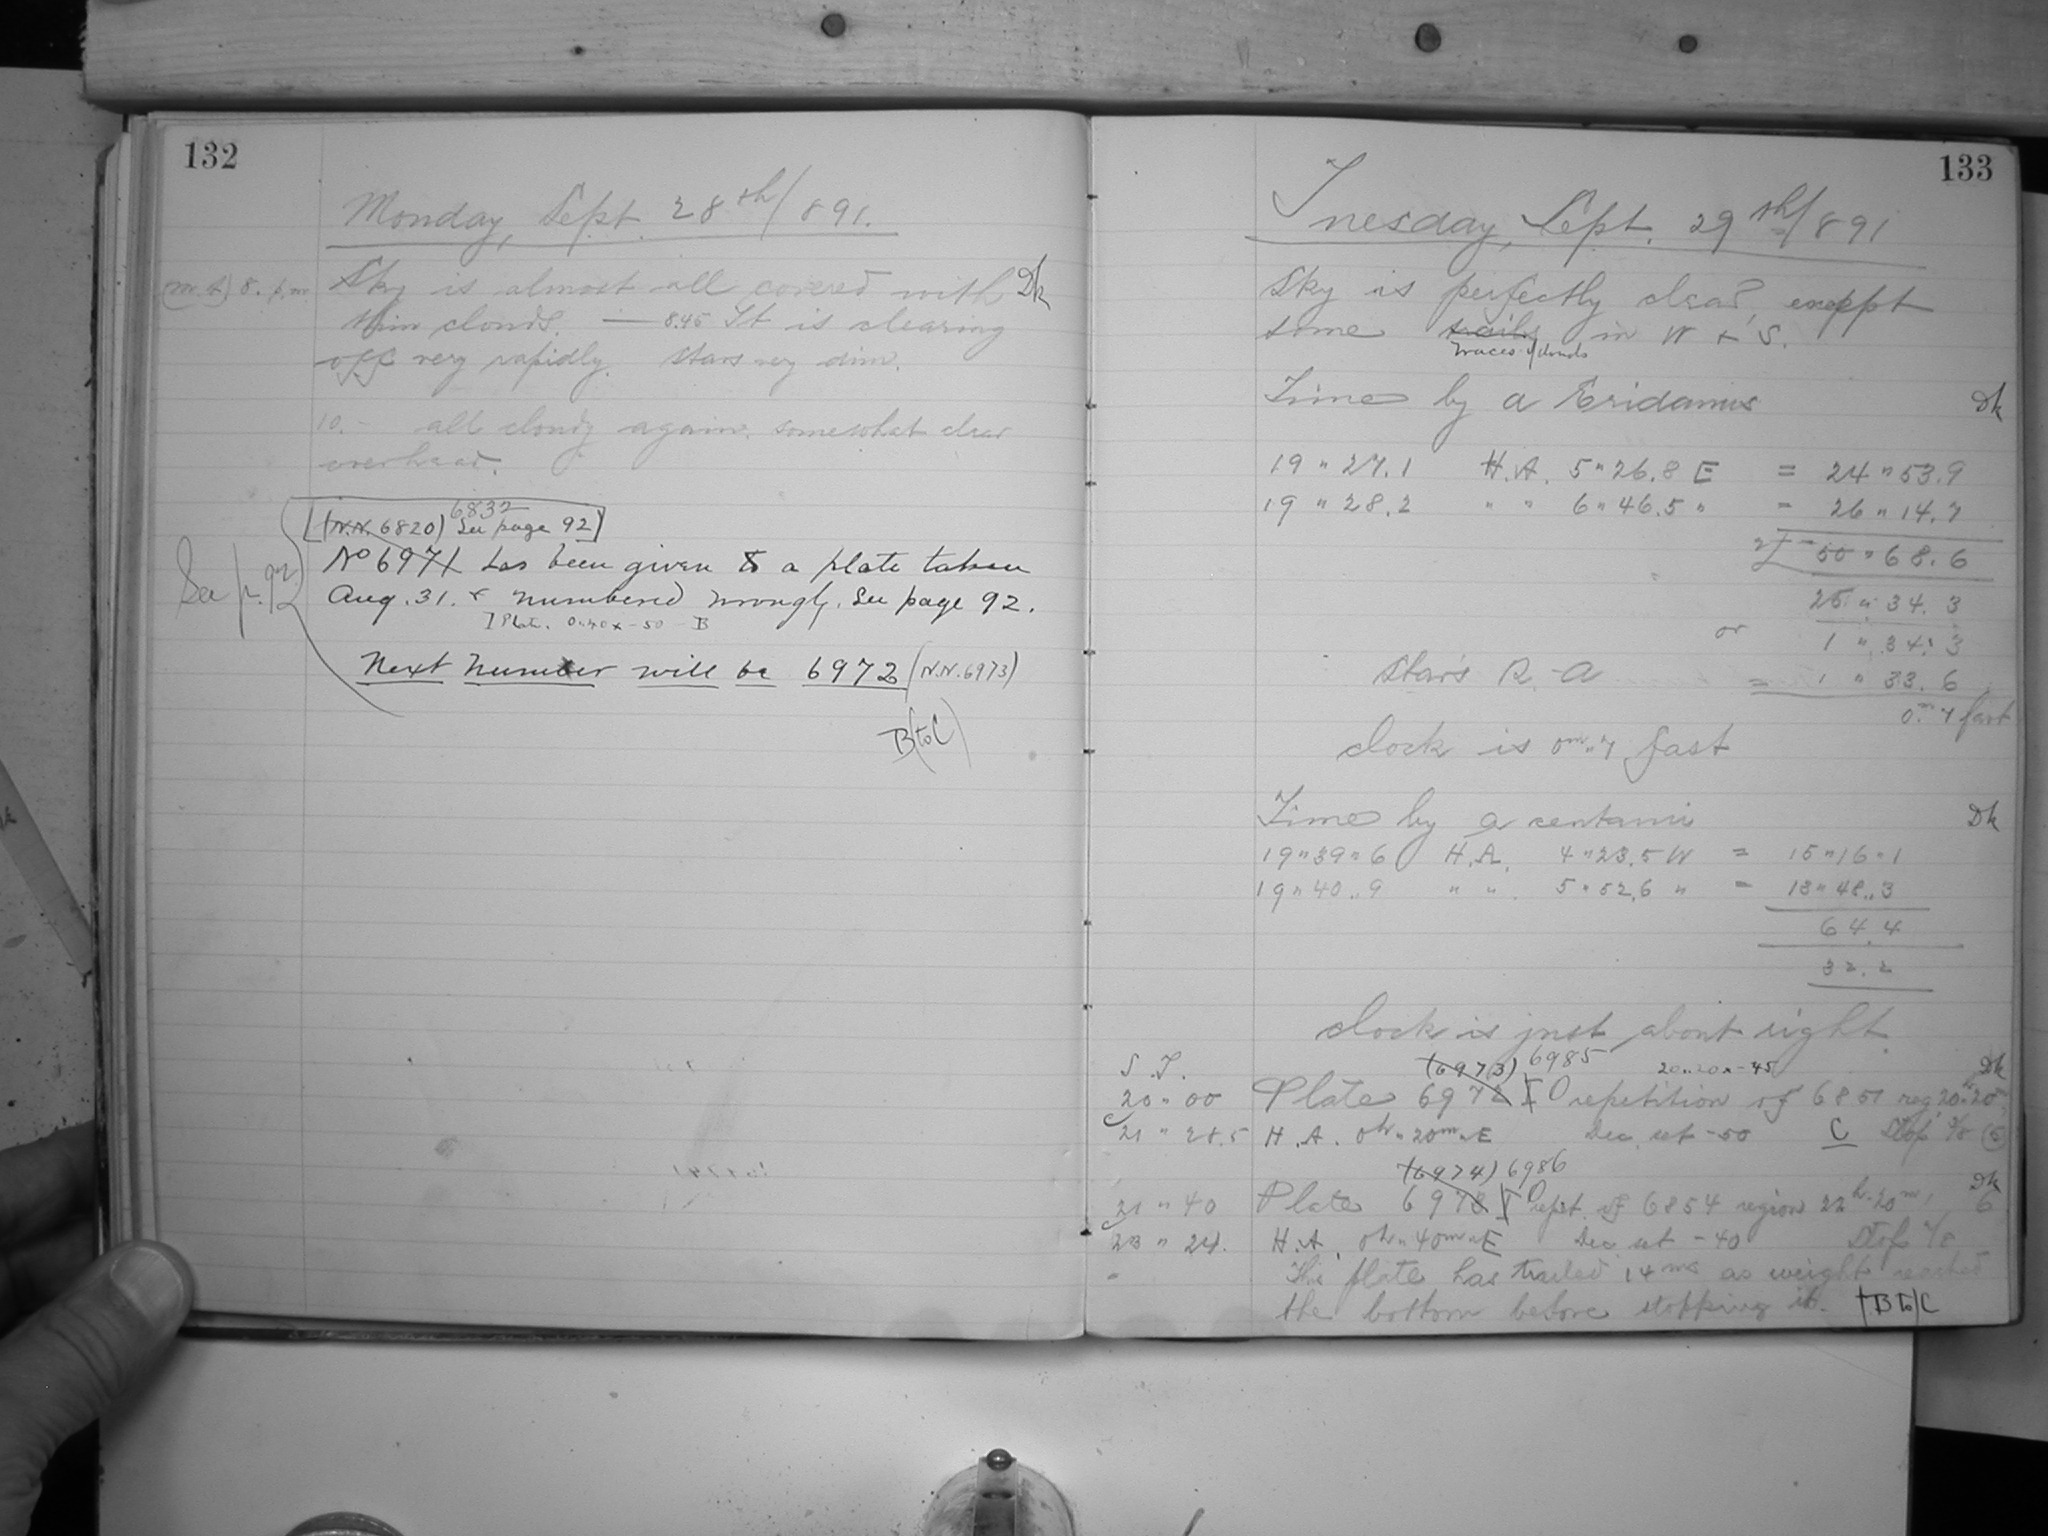 132
Monday, Sept. 28th/891.
(m.t) 8. p.m. Sky is almost all covered with Dk
thin clouds. — 8.45 It is clearing
off very rapidly. Stars very dim.
10. - all cloudy again. somewhat clear
overhead.
6832
[(N.N. 6820) See page 92]
See p. 92
No 6971 has been given to a plate taken
Aug. 31. & numbered wrongly. See page 92.
I Plate. 0"40 x -50 B
Next number will be 6972 (N.N. 6973)
B(to C)
133
Tuesday, Sept. 29th/891
Sky is perfectly clear, exceppt
some trails in W + S.
traces of clouds
Time by a Eridanus Dk
19 " 27.1 H.A. 5 " 26.8 E = 24 " 53.9
19 " 28.2 " " 6 " 46.5 " = 26 " 14.7
2/ 50 " 68.6
25 " 34.3
or 1 " 34.3
Stars R. A = 1 " 33.6
0.m 7 fast
clock is 0m.7 fast
Time by a centauri Dk
19 " 39 " 6 H.A. 4 " 23.5 W = 15 " 16 " 1
19 " 40 " 9 " " 5 " 52.6 " = 13 " 48 " 3
64.4
32.2
clock is just about right
S. T. (6973) 6985 20"20 x -45 Dk
20 " 00 Plate 6972 I repetition of 6851 reg 20"20
21 " 28.5 H. A. 0h " 20m " E Dec. set -50 C Stop
(6974) 6986 Dk
21 " 40 Plate 6973 I rept. of 6854 region 22h-20m, 6
23 " 24. H.A. 0h " 40m " E Dec. set -40 Stop
This plate has trailed 14ms as weight reached
the bottom before stopping it. (B to C